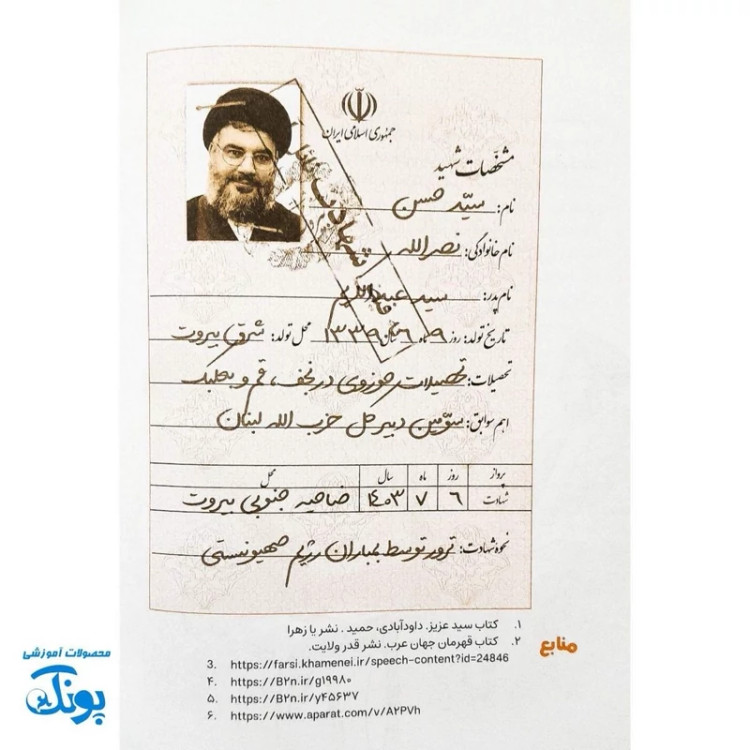 جمهوری اسلامی ایران
مشخصات شهید
نام: سیّد حسن
نام خانوادگی: نصرالله
نام پدر: سید عبدالکریم
تاریخ تولد: روز ۹ ماه ۶ سال ۱۳۳۹ محل تولد: شرق بیروت
تحصیلات: تحصیلات حوزوی در نجف، قم و بعلبک
اهم سوابق: سوّمین دبیر کل حزب الله لبنان
پرواز روز ماه سال محل
شهادت ۶ ۷ ۱۴۰۳ ضاحیه جنوبی بیروت
نحوه شهادت: ترور توسط بمباران رژیم صهیونیستی
منابع
۱. کتاب سید عزیز. داودآبادی، حمید. نشر یا زهرا
۲. کتاب قهرمان جهان عرب. نشر قدر ولایت.
3. https://farsi.khamenei.ir/speech-content?id=24846
۴. https://B2n.ir/g۱۹۹۸۰
۵. https://B2n.ir/y۴۵۶۳۷
۶. https://www.aparat.com/v/A۲PVh
محصولات آموزشی
پونک